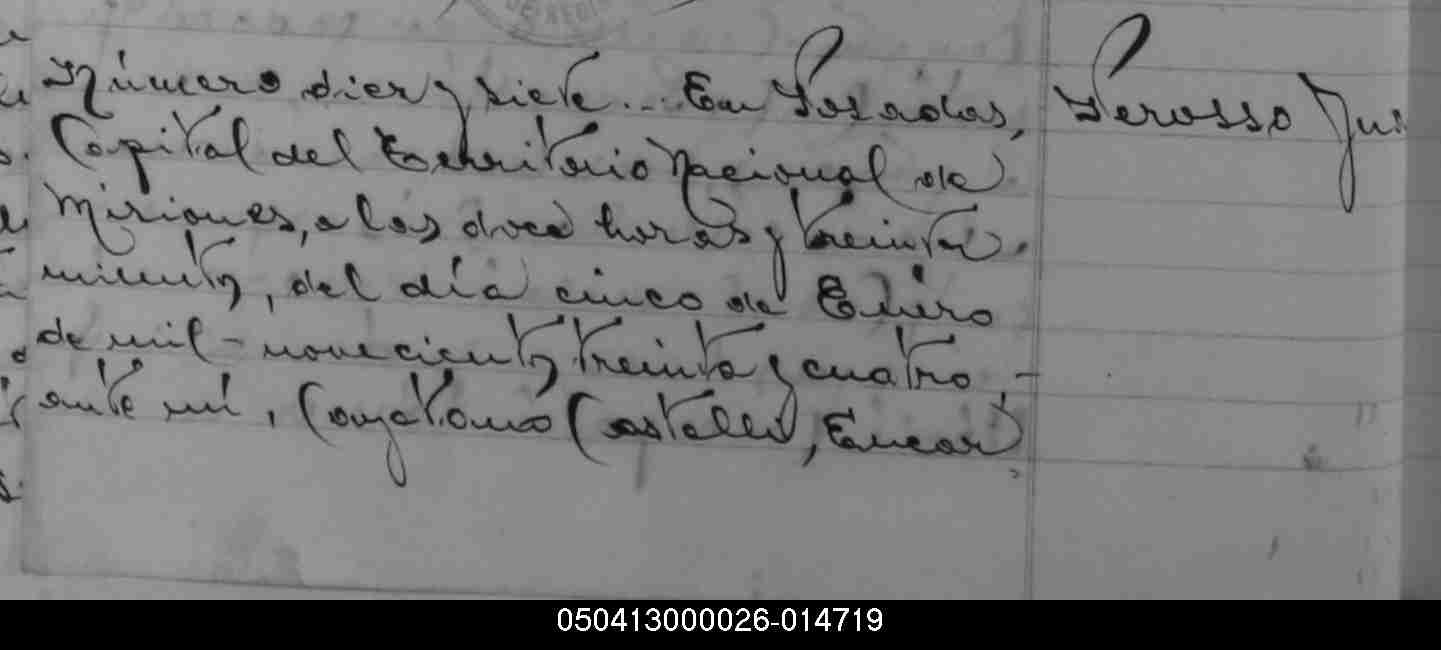 Número diez y siete... En Posadas,
Capital del Territorio Nacional de
Misiones, a las doce horas y treinta
minutos, del día cinco de Enero
de mil-novecientos treinta y cuatro,-
ante mi, Cayetano Castelli, Encar
Perosso Jus
050413000026-014719